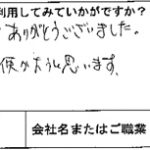 利用してみていかがですか？
ありがとうございました。
思います。
会社名またはご職業